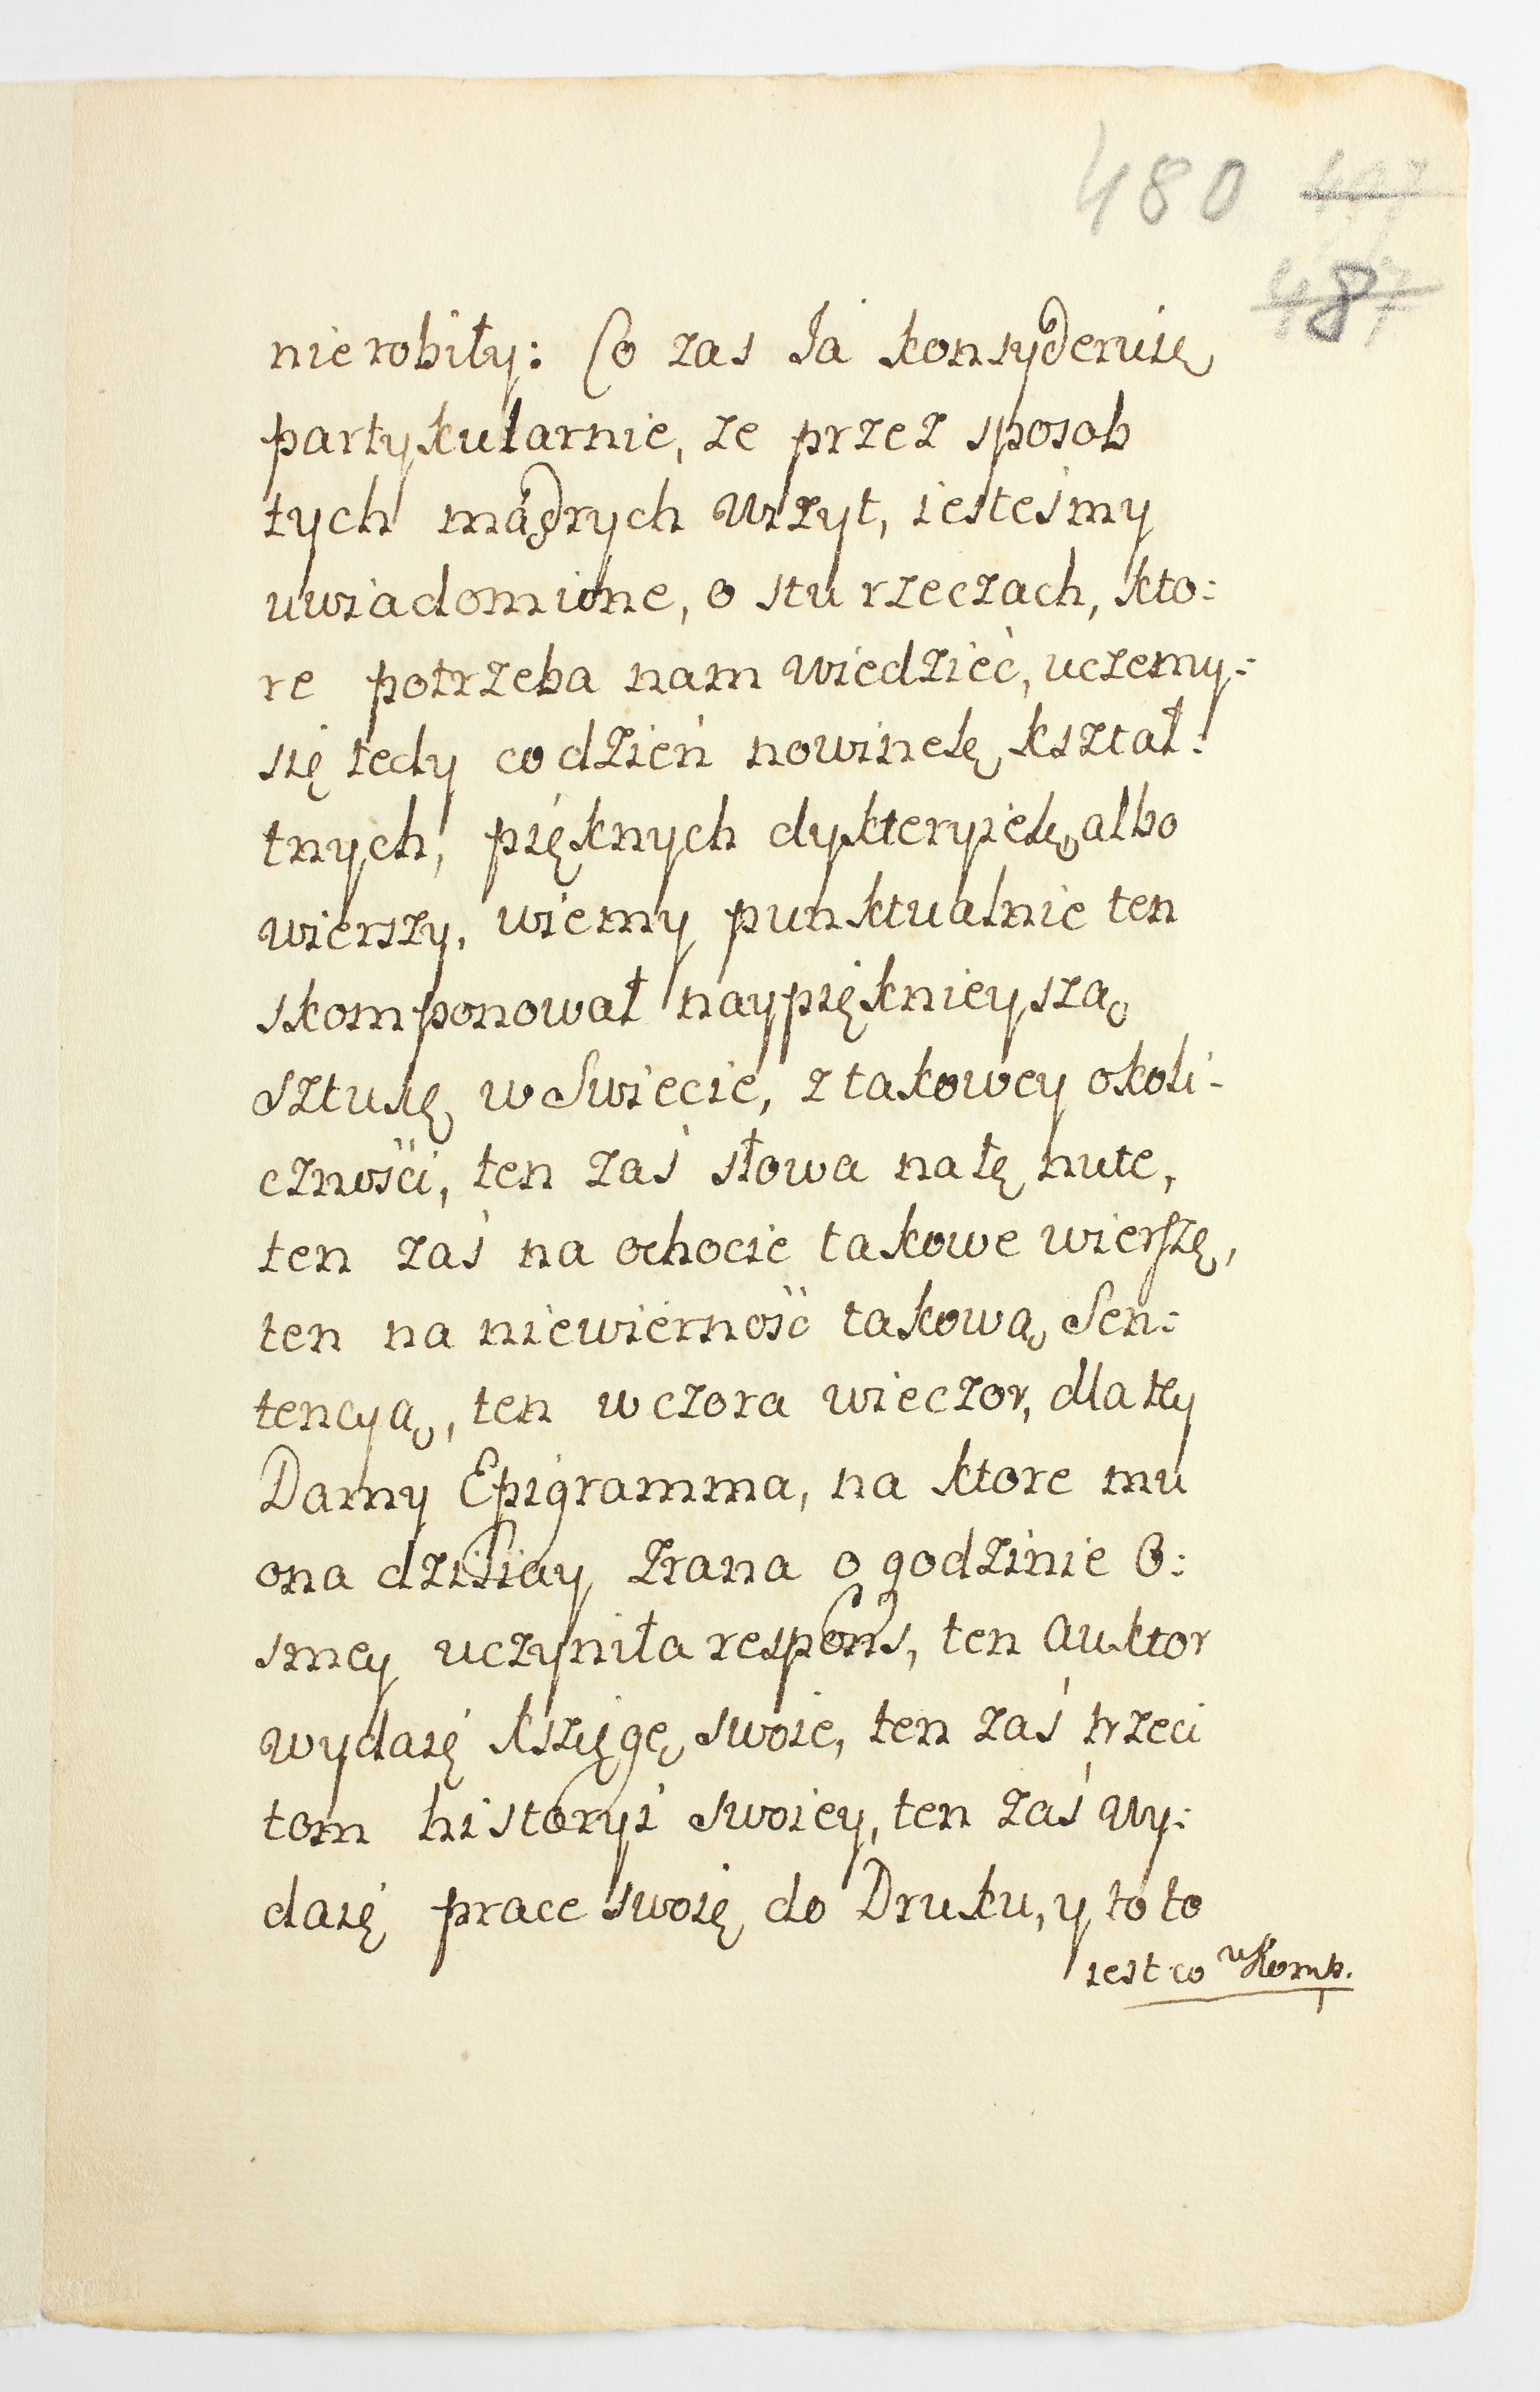 480 497
487
nie robiły: Co zas Ja konsyderuię
partykularnie, ze przez sposob
tych mądrych wizyt, iesteśmy
uwiadomione, o stu rzeczach, kto:
re potrzeba nam wiedzieć, uczemy:
się tedy co dzień nowinekę kształ:
tnych, pięknych dykteryiekę, albo
wierszy, wiemy punktualnie ten
skomponował naypięknieyszą
Sztukę w Swiecie, z takowey okoli-
czności, ten zaś słowa na tę nute,
ten zaś na ochocie takowe wierszę,
ten na niewierność takową Sen:
tencyą, ten wczora wieczor, dla tey
Damy Epigramma, na ktore mu
ona dzisiay zrana o godzinie O:
smey uczyniła respons, ten Auktor
wydaię Kszięgę swoie, ten zaś trzeci
tom historyi swoiey, ten zaś wy:
daię prace swoię do Druku, y to to
iest co w Komp.